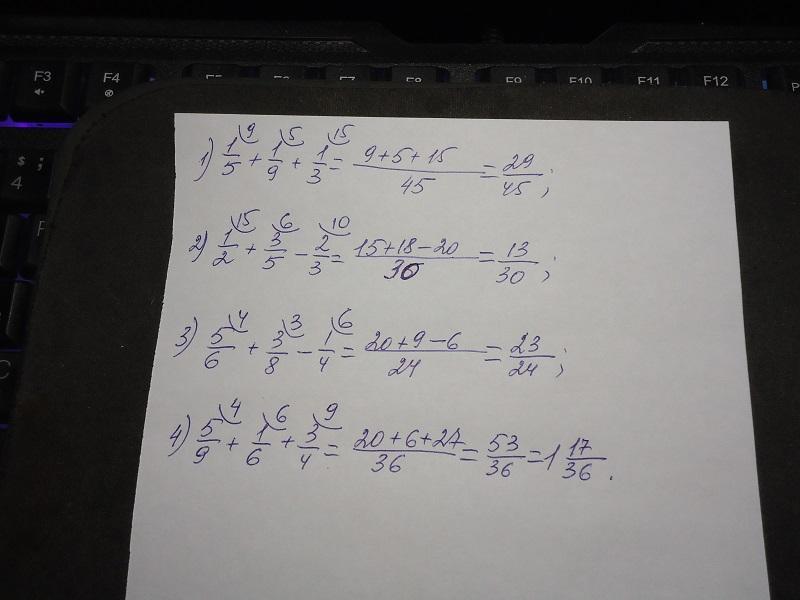 F3 F4 F5 F6 F7 F8 F9 F10 F11 F12
$ ;
4
1) 1/5 (9 + 1/9 (5 + 1/3 (15 = (9+5+15)/45 = 29/45;
2) 1/2 (15 + 3/5 (6 - 2/3 (10 = (15+18-20)/30 = 13/30;
3) 5/6 (4 + 3/8 (3 - 1/4 (6 = (20+9-6)/24 = 23/24;
4) 5/9 (4 + 1/6 (6 + 3/4 (9 = (20+6+27)/36 = 53/36 = 1 17/36.